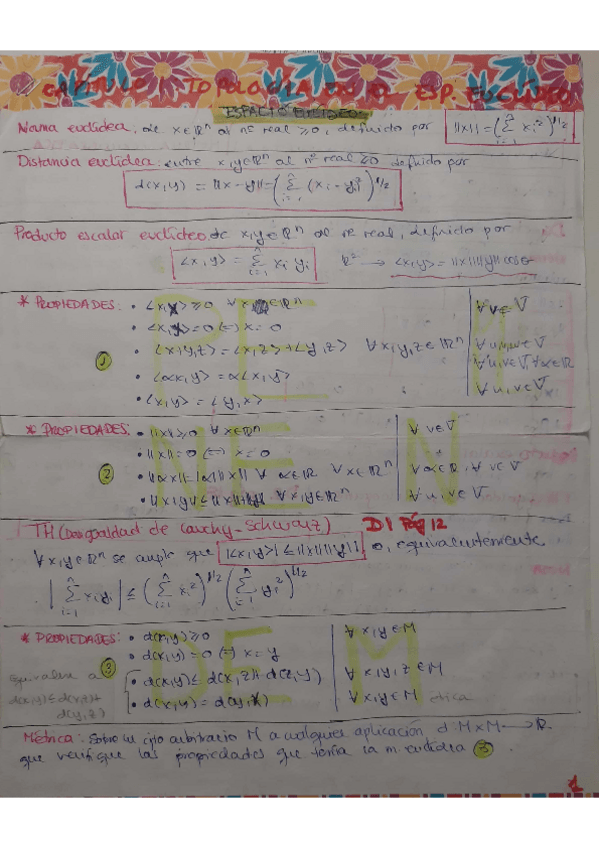 CAPÍTULO 1 TOPOLOGÍA EN Rⁿ. ESP. EUCLÍDEO
ESPACIO EUCLÍDEO
Norma euclídea, de x∈ℝⁿ al nº real ≥0, definido por ||x|| = (∑ⁿᵢ₌₁ xᵢ²)^1/2
Distancia euclídea: entre x,y∈ℝⁿ al nº real ≥0 definido por
d(x,y) = ||x-y|| = (∑ⁿᵢ₌₁ (xᵢ-yᵢ)²)^1/2
Producto escalar euclídeo, de x,y∈ℝⁿ al nº real, definido por
<x,y> = ∑ⁿᵢ₌₁ xᵢ yᵢ ℝ² → <x,y> = ||x|| ||y|| cos θ
* PROPIEDADES: • <x,x> ≥0 ∀x∈ℝⁿ ∀v∈V
• <x,x> =0 (=) x=0
① • <x+y,z> = <x,z> + <y,z> ∀x,y,z∈ℝⁿ ∀u,v,w∈V
• <αx,y> = α<x,y> ∀u,v∈V, ∀α∈ℝ
• <x,y> = <y,x> ∀u,v∈V
* PROPIEDADES: • ||x||≥0 ∀x∈ℝⁿ ∀v∈V
• ||x||=0 (=) x=0
② • ||αx||=|α| ||x|| ∀ α∈ℝ ∀x∈ℝⁿ ∀α∈ℝ, ∀v∈V
• ||x+y||≤||x||+||y|| ∀x,y∈ℝⁿ ∀u,v∈V
TH (Desigualdad de Cauchy-Schwarz) D1 Pág 12
∀x,y∈ℝⁿ se cumple que |<x,y>| ≤ ||x|| ||y|| o, equivalentemente
|∑ⁿᵢ₌₁ xᵢyᵢ| ≤ (∑ⁿᵢ₌₁ xᵢ²)^1/2 (∑ⁿᵢ₌₁ yᵢ²)^1/2
* PROPIEDADES: • d(x,y)≥0 ∀x,y∈M
③ • d(x,y)=0 (=) x=y
Equivalente a • d(x,y)≤d(x,z)+d(z,y) ∀x,y,z∈M
d(x,y)≤d(x,z)+ • d(x,y)=d(y,x) ∀x,y∈M
d(y,z)
Métrica: Sobre un cjto arbitrario M a cualquier aplicación d: M×M→ℝ
que verifique las propiedades que tenía la m. euclídea ③.
1